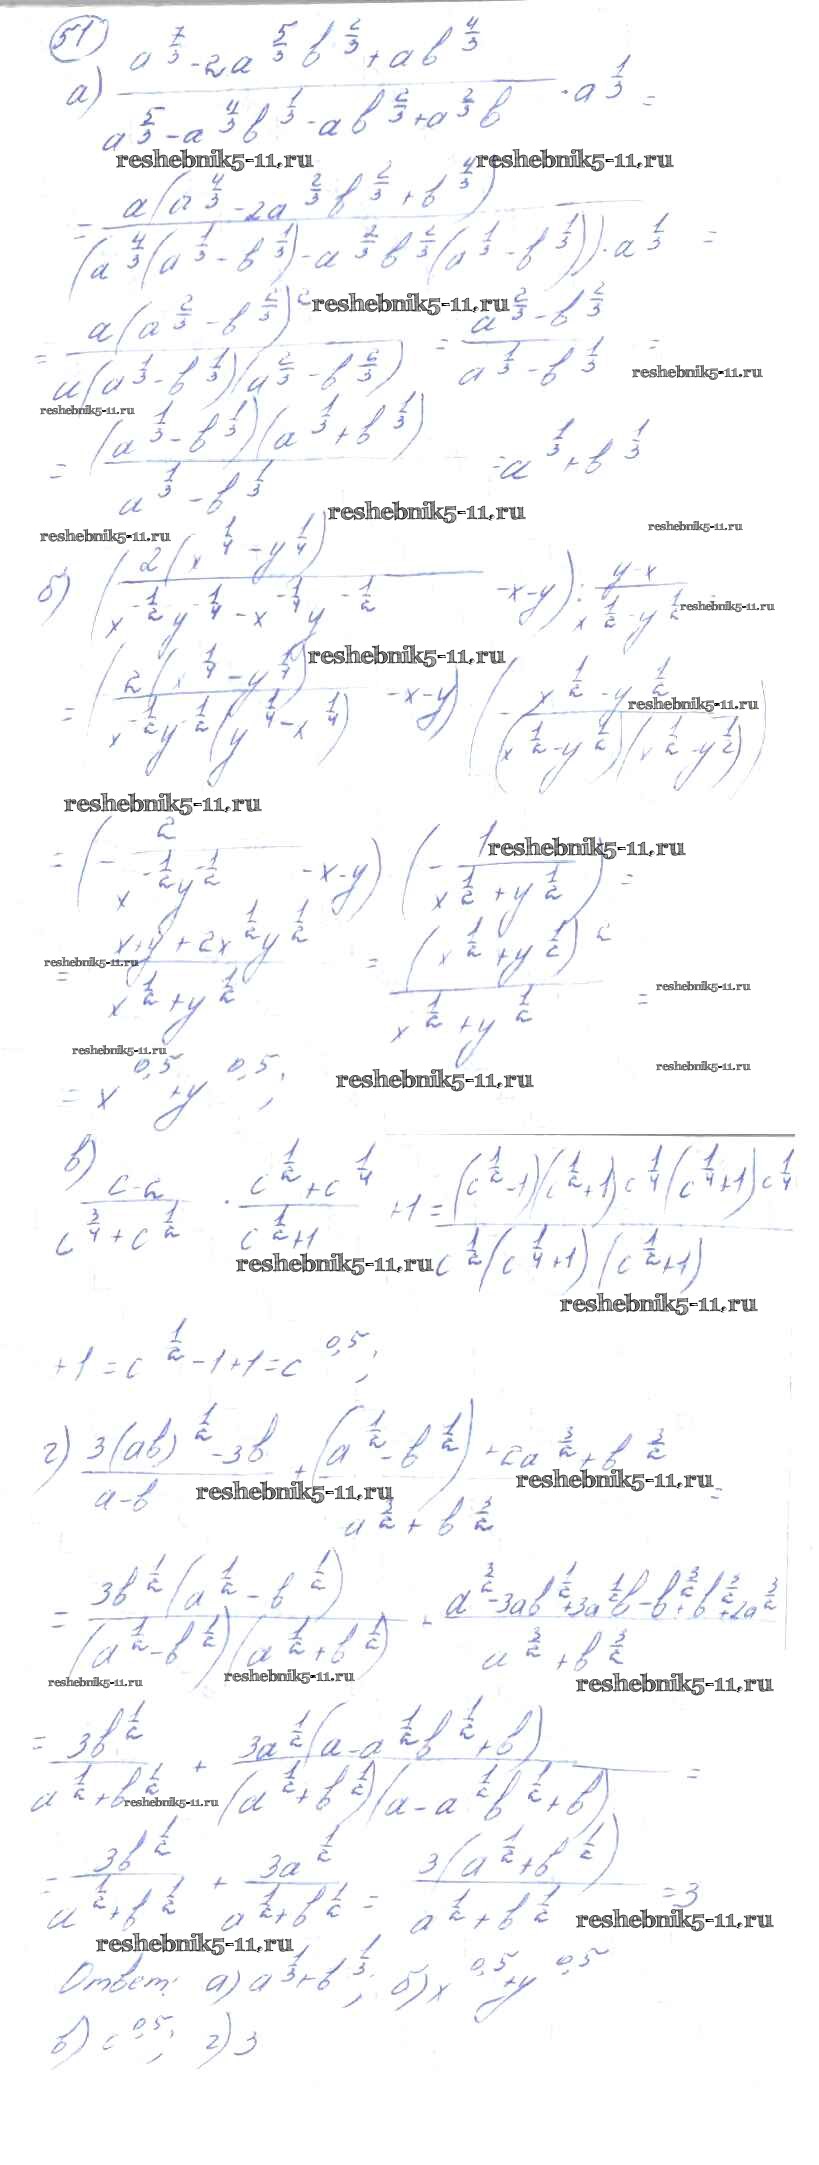 51
а) (a^(7/3) - 2a^(5/3) b^(2/3) + ab^(4/3)) / (a^(5/3) - a^(4/3) b^(1/3) - ab^(2/3) + a^(2/3) b) · a^(1/3) =
reshebnik5-11.ru reshebnik5-11.ru
= a(a^(4/3) - 2a^(2/3) b^(2/3) + b^(4/3)) / (a^(4/3)(a^(1/3) - b^(1/3)) - a^(2/3) b^(2/3)(a^(1/3) - b^(1/3))) · a^(1/3) =
reshebnik5-11.ru
= a(a^(2/3) - b^(2/3))^2 / a(a^(1/3) - b^(1/3))(a^(2/3) - b^(2/3)) = (a^(2/3) - b^(2/3)) / (a^(1/3) - b^(1/3)) =
reshebnik5-11.ru
reshebnik5-11.ru
= (a^(1/3) - b^(1/3))(a^(1/3) + b^(1/3)) / (a^(1/3) - b^(1/3)) = a^(1/3) + b^(1/3)
reshebnik5-11.ru
reshebnik5-11.ru reshebnik5-11.ru
б) (2(x^(1/4) - y^(1/4)) / (x^(-1/2) y^(-1/4) - x^(-1/4) y^(-1/2)) - x - y) : (y - x) / (x^(1/2) - y^(1/2))
reshebnik5-11.ru
reshebnik5-11.ru
= (2(x^(1/4) - y^(1/4)) / x^(-1/2) y^(-1/2)(y^(1/4) - x^(1/4)) - x - y) · (- (x^(1/2) - y^(1/2)) / (x^(1/2) - y^(1/2))(x^(1/2) - y^(1/2)))
reshebnik5-11.ru
reshebnik5-11.ru
= (- 2 / x^(-1/2) y^(-1/2) - x - y) · (- 1 / (x^(1/2) + y^(1/2))) =
reshebnik5-11.ru
= (x + y + 2x^(1/2) y^(1/2)) / (x^(1/2) + y^(1/2)) = (x^(1/2) + y^(1/2))^2 / (x^(1/2) + y^(1/2)) =
reshebnik5-11.ru
reshebnik5-11.ru
reshebnik5-11.ru reshebnik5-11.ru
= x^0,5 + y^0,5;
reshebnik5-11.ru
в) (c - 2) / (c^(3/4) + c^(1/2)) · (c^(1/2) + c^(1/4)) / (c^(1/2) + 1) + 1 = (c^(1/2) - 1)(c^(1/2) + 1) c^(1/4)(c^(1/4) + 1) c^(1/4) / c^(1/2)(c^(1/4) + 1)(c^(1/2) + 1)
reshebnik5-11.ru
reshebnik5-11.ru
+ 1 = c^(1/2) - 1 + 1 = c^0,5;
г) (3(ab)^(1/2) - 3b) / (a - b) + ((a^(1/2) - b^(1/2)) + 2a^(3/2) + b^(3/2)) / (a^(3/2) + b^(3/2)) =
reshebnik5-11.ru reshebnik5-11.ru
= 3b^(1/2)(a^(1/2) - b^(1/2)) / (a^(1/2) - b^(1/2))(a^(1/2) + b^(1/2)) + (a^(3/2) - 3ab^(1/2) + 3a^(1/2) b - b^(3/2) + b^(3/2) + 2a^(3/2)) / (a^(3/2) + b^(3/2))
reshebnik5-11.ru reshebnik5-11.ru reshebnik5-11.ru
= 3b^(1/2) / (a^(1/2) + b^(1/2)) + 3a^(1/2)(a - a^(1/2) b^(1/2) + b) / (a^(1/2) + b^(1/2))(a - a^(1/2) b^(1/2) + b) =
reshebnik5-11.ru
= 3b^(1/2) / (a^(1/2) + b^(1/2)) + 3a^(1/2) / (a^(1/2) + b^(1/2)) = 3(a^(1/2) + b^(1/2)) / (a^(1/2) + b^(1/2)) = 3
reshebnik5-11.ru
reshebnik5-11.ru
Ответ: а) a^(1/3) + b^(1/3); б) x^0,5 + y^0,5
в) c^0,5; г) 3